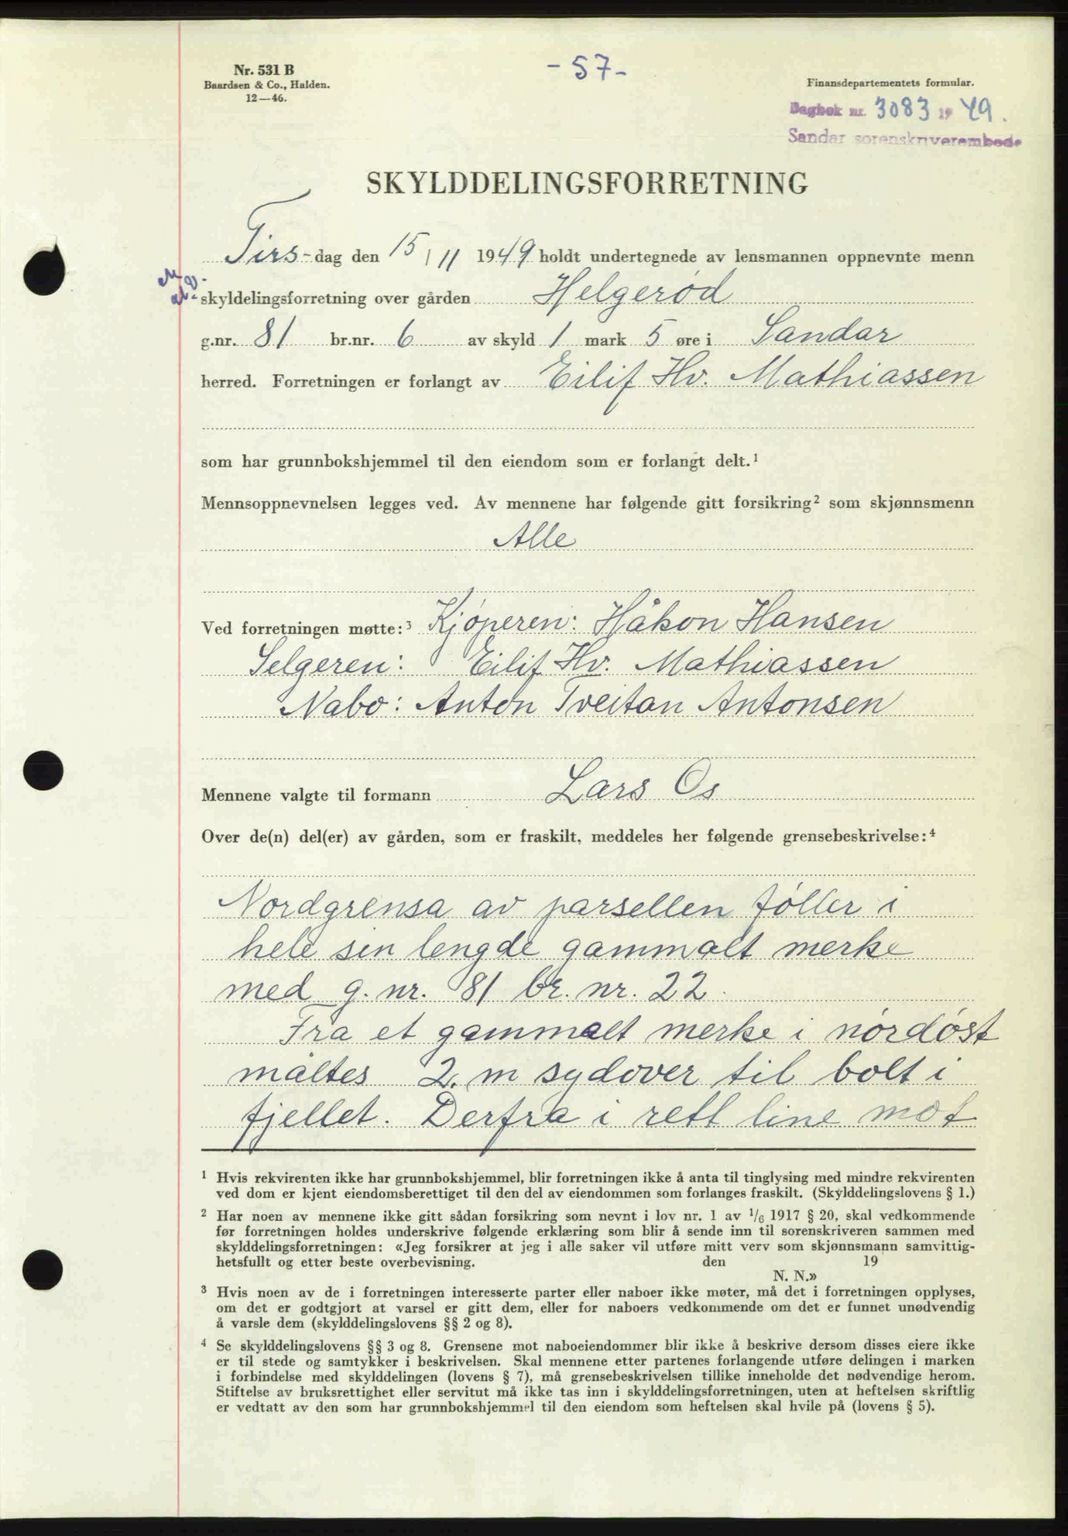 Nr. 531 B
Baardsen & Co., Halden.
12—46.
- 57 -
Finansdepartementets formular.
Dagbok nr. 3083 19 49.
Sandar sorenskriverembede
SKYLDDELINGSFORRETNING
Tirs-dag den 15/11 1949 holdt undertegnede av lensmannen oppnevnte menn
skyldelingsforretning over gården Helgerød
g.nr. 81 br.nr. 6 av skyld 1 mark 5 øre i Sandar
herred. Forretningen er forlangt av Eilif Hv. Mathiassen
som har grunnbokshjemmel til den eiendom som er forlangt delt.¹
Mennsoppnevnelsen legges ved. Av mennene har følgende gitt forsikring² som skjønnsmenn
Alle
Ved forretningen møtte:³ Kjøperen: Håkon Hansen
Selgeren: Eilif Hv. Mathiassen
Nabo: Anton Tveitan Antonsen
Mennene valgte til formann Lars Os
Over de(n) del(er) av gården, som er fraskilt, meddeles her følgende grensebeskrivelse:⁴
Nordgrensa av parsellen føller i
hele sin lengde gammalt merke
med g. nr. 81 br. nr. 22.
Fra et gammalt merke i nordøst
måltes 2. m sydover til bolt i
fjellet. Derfra i rett line mot
¹ Hvis rekvirenten ikke har grunnbokshjemmel, blir forretningen ikke å anta til tinglysing med mindre rekvirenten
ved dom er kjent eiendomsberettiget til den del av eiendommen som forlanges fraskilt. (Skylddelingslovens § 1.)
² Har noen av mennene ikke gitt sådan forsikring som nevnt i lov nr. 1 av 1/6 1917 § 20, skal vedkommende
før forretningen holdes underskrive følgende erklæring som blir å sende inn til sorenskriveren sammen med
skylddelingsforretningen: «Jeg forsikrer at jeg i alle saker vil utføre mitt verv som skjønnsmann samvittig-
hetsfullt og etter beste overbevisning. den 19
N. N.»
³ Hvis noen av de i forretningen interesserte parter eller naboer ikke møter, må det i forretningen opplyses,
om det er godtgjort at varsel er gitt dem, eller for naboers vedkommende om det er funnet unødvendig
å varsle dem (skylddelingslovens §§ 2 og 8).
⁴ Se skylddelingslovens §§ 3 og 8. Grensene mot naboeiendommer blir ikke å beskrive dersom disses eiere ikke
er til stede og samtykker i beskrivelsen. Skal mennene etter partenes forlangende utføre delingen i marken
i forbindelse med skylddelingen (lovens § 7), må grensebeskrivelsen tillike inneholde det nødvendige herom.
Stiftelse av bruksrettighet eller servitut må ikke tas inn i skylddelingsforretningen, uten at heftelsen skriftlig
er vedtatt av den som har grunnbokshjemmel til den eiendom som heftelsen skal hvile på (lovens § 5).